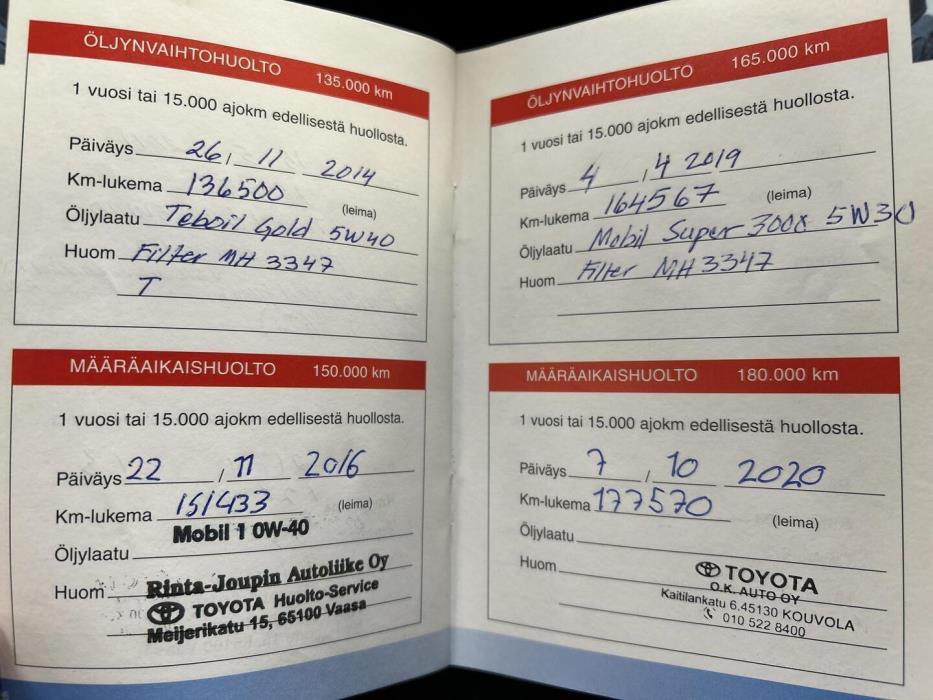 ÖLJYNVAIHTOHUOLTO 135.000 km
1 vuosi tai 15.000 ajokm edellisestä huollosta.
Päiväys 26 / 11 2014
Km-lukema 136500 (leima)
Öljylaatu Teboil Gold 5W40
Huom Filter MH 3347
T
MÄÄRÄAIKAISHUOLTO 150.000 km
1 vuosi tai 15.000 ajokm edellisestä huollosta.
Päiväys 22 / 11 2016
Km-lukema 151433 (leima)
Mobil 1 0W-40
Öljylaatu
Huom Rinta-Joupin Autoliike Oy
TOYOTA Huolto-Service
Meijerikatu 15, 65100 Vaasa
ÖLJYNVAIHTOHUOLTO 165.000 km
1 vuosi tai 15.000 ajokm edellisestä huollosta.
Päiväys 4 / 4 2019
Km-lukema 164567 (leima)
Öljylaatu Mobil Super 300x 5W30
Huom Filter MH3347
MÄÄRÄAIKAISHUOLTO 180.000 km
1 vuosi tai 15.000 ajokm edellisestä huollosta.
Päiväys 7 / 10 2020
Km-lukema 177570 (leima)
Öljylaatu
Huom TOYOTA
O.K. AUTO OY
Kaitilankatu 6.45130 KOUVOLA
010 522 8400